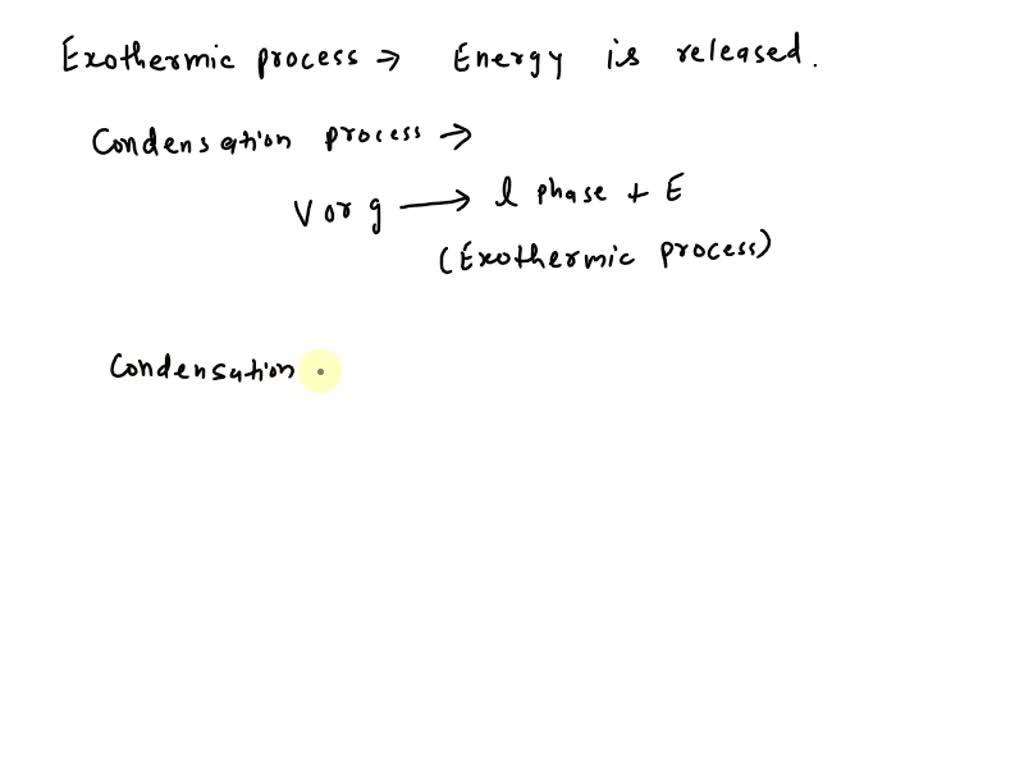 Exothermic process → Energy is released.
Condensation process →
V or g → l phase + E
(Exothermic process)
Condensation